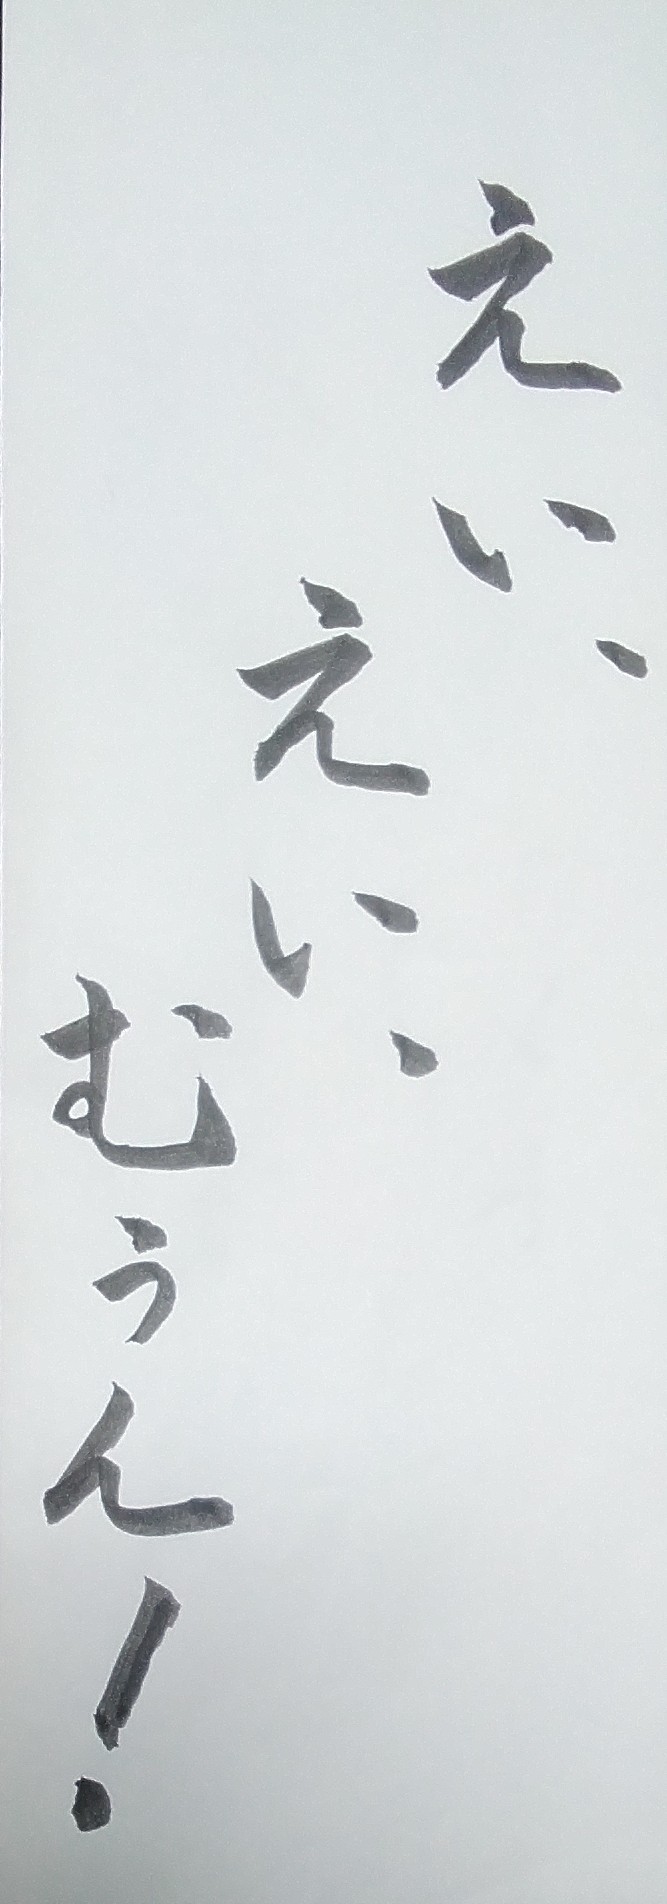 えい、
えい、
むぅん！